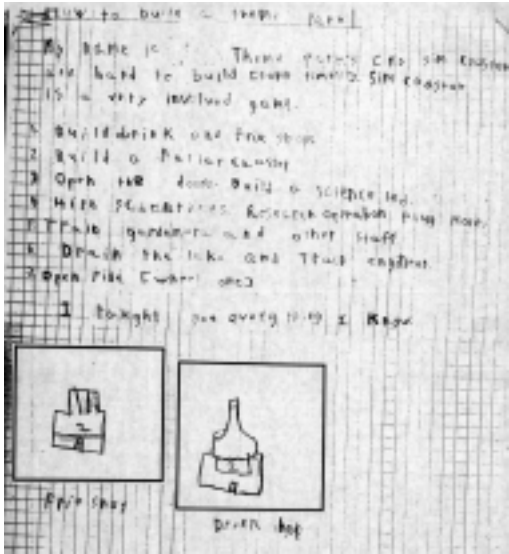 How to build a theme park
My name is Theme parks and sim coaster
are hard to build some times sim coaster
is a very involved game.
1 Build drink and frie shops
2 Build a Rollercoaster
3 Open the doors Build a science led.
4 Hire Research operation
5 Train gardeners and other staff
6 Drain the lake and Track
7 Open ride
I taught you every I know
Frie shop
Drien shop